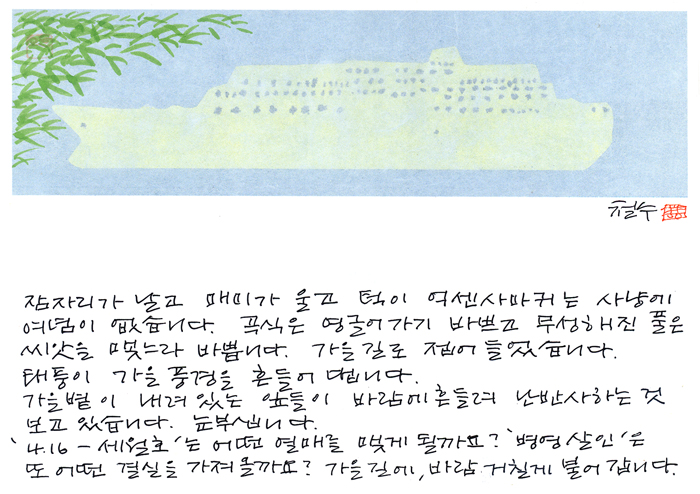 철수
잠자리가 날고 매미가 울고 턱이 억센 사마귀는 사냥에
여념이 없습니다. 곡식은 영글어가기 바쁘고 무성해진 풀은
씨앗을 맺느라 바쁩니다. 가을길로 접어 들었습니다.
태풍이 가을 풍경을 흔들어 댑니다.
가을볕이 내려 있는 잎들이 바람에 흔들려 난반사하는 것
보고 있습니다. 눈부십니다.
'4.16 - 세월호'는 어떤 열매를 맺게 될까요? '병영살인'은
또 어떤 결실을 가져올까요? 가을길에, 바람 거칠게 불어 갑니다.